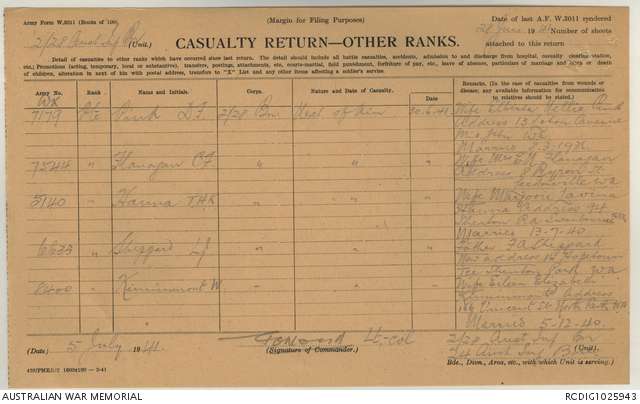 Army Form W.3011 (Books of 100).
(Margin for Filing Purposes)
Date of last A.F. W.3011 rendered
28 June 1941 Number of sheets
attached to this return
2/28 Aust Inf Bn (Unit.)
CASUALTY RETURN—OTHER RANKS.
Detail of casualties to other ranks which have occurred since last return. The detail should include all battle casualties, accidents, admissions to and discharge from hospital, casualty clearing station,
etc.; Promotions (acting, temporary, local or substantive), transfers, postings, attachments, etc., courts-martial, field punishment, forfeiture of pay, etc., leave of absence, particulars of marriage and birth or death
of children, alteration in next of kin with postal address, transfers to "X" List and any other items affecting a soldier's service.
Army No. Rank. Names and Initials. Corps. Nature and Date of Casualty. Date Remarks. (In the case of casualties from wounds or disease, any available information for communication to relatives should be stated.)
WX
7179 Pte 2/28 Bn. Next of Kin 30.6.41 Wife
Address 13
Married 8.3.1941.
7544 " Flanagan " " " " Wife Mrs Flanagan
Address 8 Byron St
Leederville WA
5140 " Hanna T.H.R. " " " Wife Marjorie Lavina
Hanna Address 94
Rd
Married 13-7-40
6633 " Sheppard LJ " " " Father Sheppard
New address 14 Hopetoun
Tce Shenton Park WA
8400 " W. " " " Wife Eileen Elizabeth
Address
166 Vincent St North Perth WA
Married 5-12-40.
(Date) 5 July 1941. Lt-Col
(Signature of Commander.)
2/28 Aust Inf Bn (Unit)
24 Aust Inf Bde
Bde., Divn., Area, etc., with which Unit is serving.)
AUSTRALIAN WAR MEMORIAL
RCDIG1025943